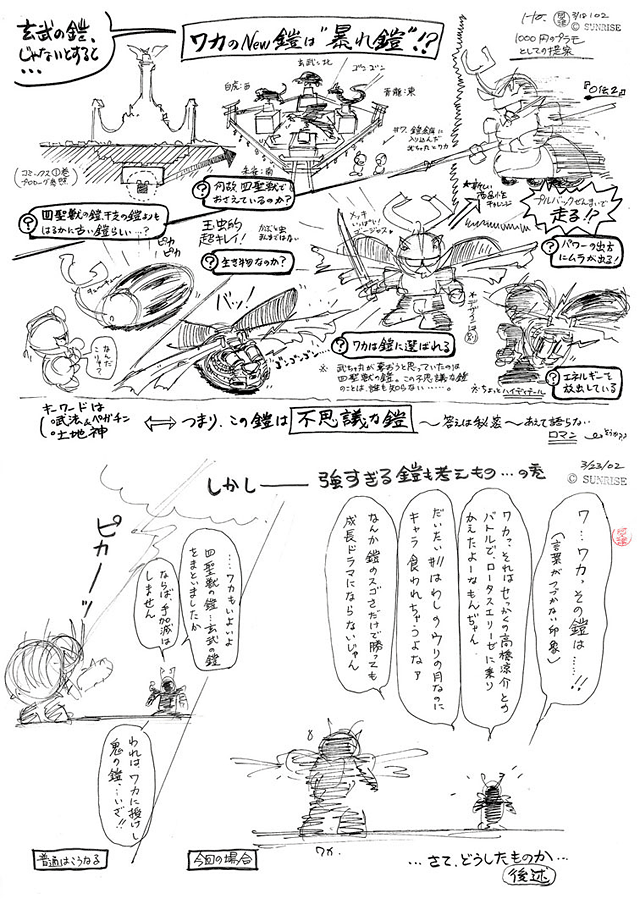 玄武の鎧、
じゃないとすると
・・・
ワカのNew鎧は"暴れ鎧"!?
3/12/02
© SUNRISE
1000円のプラモ
としての提案
玄武:北
白虎:西
青龍:東
朱雀:南
コミックス①巻
プロローグ参照
? 四聖獣の鎧、干支の鎧よりも
はるかに古い鎧らしい…?
? 何故四聖獣で
おさえているのか?
入り込んだ
武ちゃ丸とワカ
★新しい
商品性に
チャレンジ
プルバックぜんまいで
走る!?
? パワーの出方
にムラが出る!
ピカ
ピカ
玉虫的
超キレイ!
? 生き物なのか?
メッチャ
いっぱい!
ゴージャス
なんだ
こりゃ?
バッ!
ゴンゴンゴン…
? ワカは鎧に選ばれる
※武ちゃ丸が奪おうと思っていたのは
四聖獣の鎧。この不思議な鎧
のことは、誰も知らない……。
? エネルギーを
放出している
※ちょっとハイディテール
キーワードは
・武法&ペガチン
・土地神
⇔ つまり、この鎧は 不思議な鎧 〜答えは秘密〜あえて語らない
ロマン
しかし── 強すぎる鎧も考えもの…の巻
3/23/02
© SUNRISE
ワ…ワカ、その鎧は……!!
(言葉がつづかない印象)
ワカ、それはせっかくの高橋涼介との
バトルで、ロータスエリーゼに乗り
かえたよーなもんぢゃん
だいたい#11はわしのウリの月なのに
キャラ食われちゃうよなァ
なんか鎧のスゴさだけで勝っても
成長ドラマにならないじゃん
ピカーッ
……ワカもいよいよ
四聖獣の鎧…玄武の鎧
をまといましたか
ならば、手加減は
しません
われは、ワカに授けし
鬼の鎧…いざ!!
普通はこうなる
今回の場合
ワカ
…さて、どうしたものか…
後述